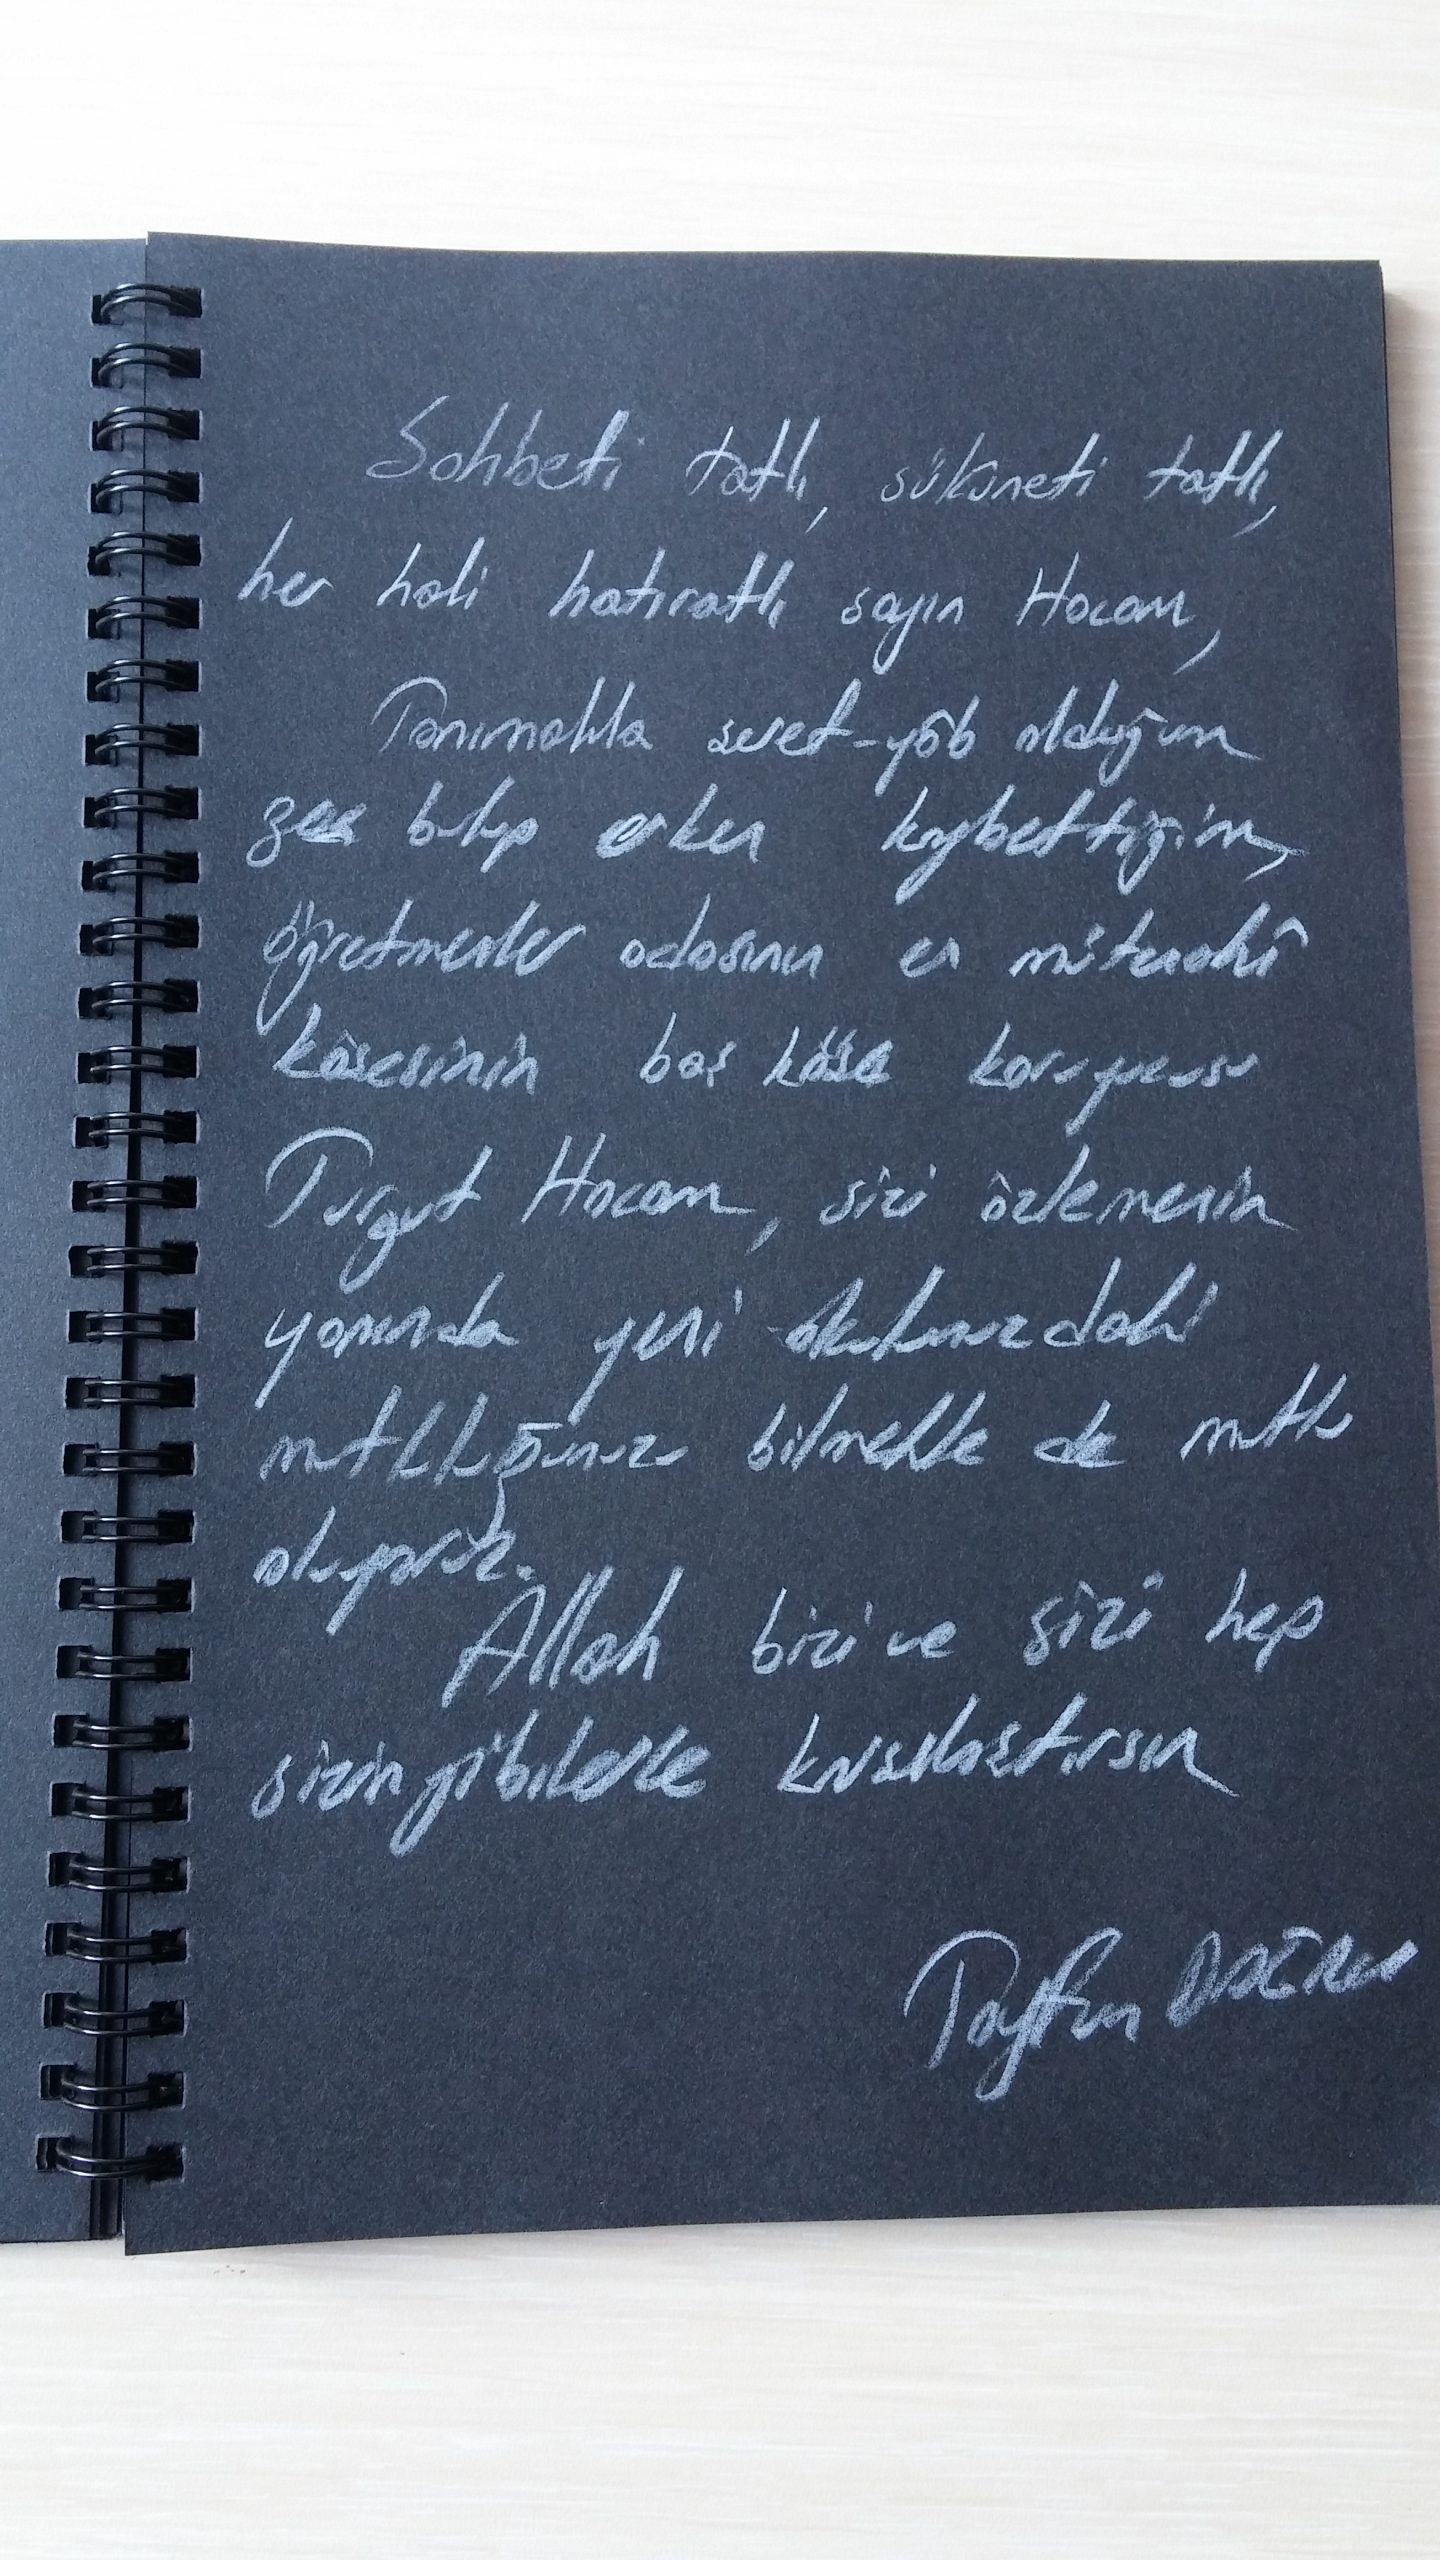 Sohbeti tatlı, sükuneti tatlı,
her hali hatıratlı sayın Hocam,
Tanımakla şeref-yâb olduğum
geç bulup erken kaybettiğim,
öğretmenler odasının en mütevahi
köşesinin baş köşe koruyucusu
Turgut Hocam, sizi özlemenin
yanında yeni okulunuzdaki
mutluluğunuzu bilmekle de mutlu
oluyoruz.
Allah bizi ve sizi hep
sizin gibilerle karşılaştırsın
Tayfun